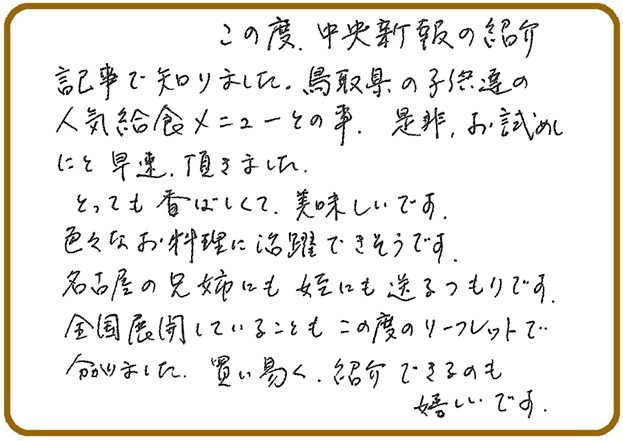 この度、中央新報の紹介
記事で知りました。鳥取県の子供達の
人気給食メニューとの事、是非、お試めし
にと早速、頂きました。
とっても香ばしくて、美味しいです。
色々なお料理に活躍できそうです。
名古屋の兄姉にも姪にも送るつもりです。
全国展開していることもこの度のリーフレットで
分かりました。買い易く、紹介できるのも
嬉しいです。